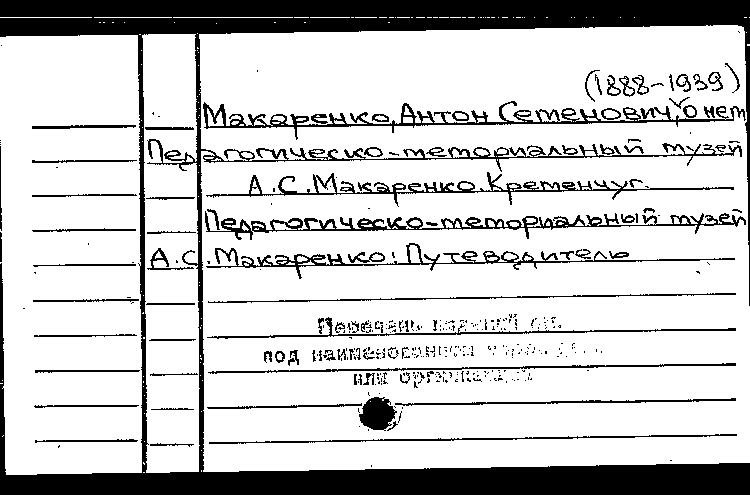 (1888-1939)
Макаренко, Антон Семенович, о нем
Педагогическо-мемориальный музей
А.С.Макаренко. Кременчуг.
Педагогическо-мемориальный музей
А.С.Макаренко: Путеводитель
Перечень изданий см.
под наименованием
или организации